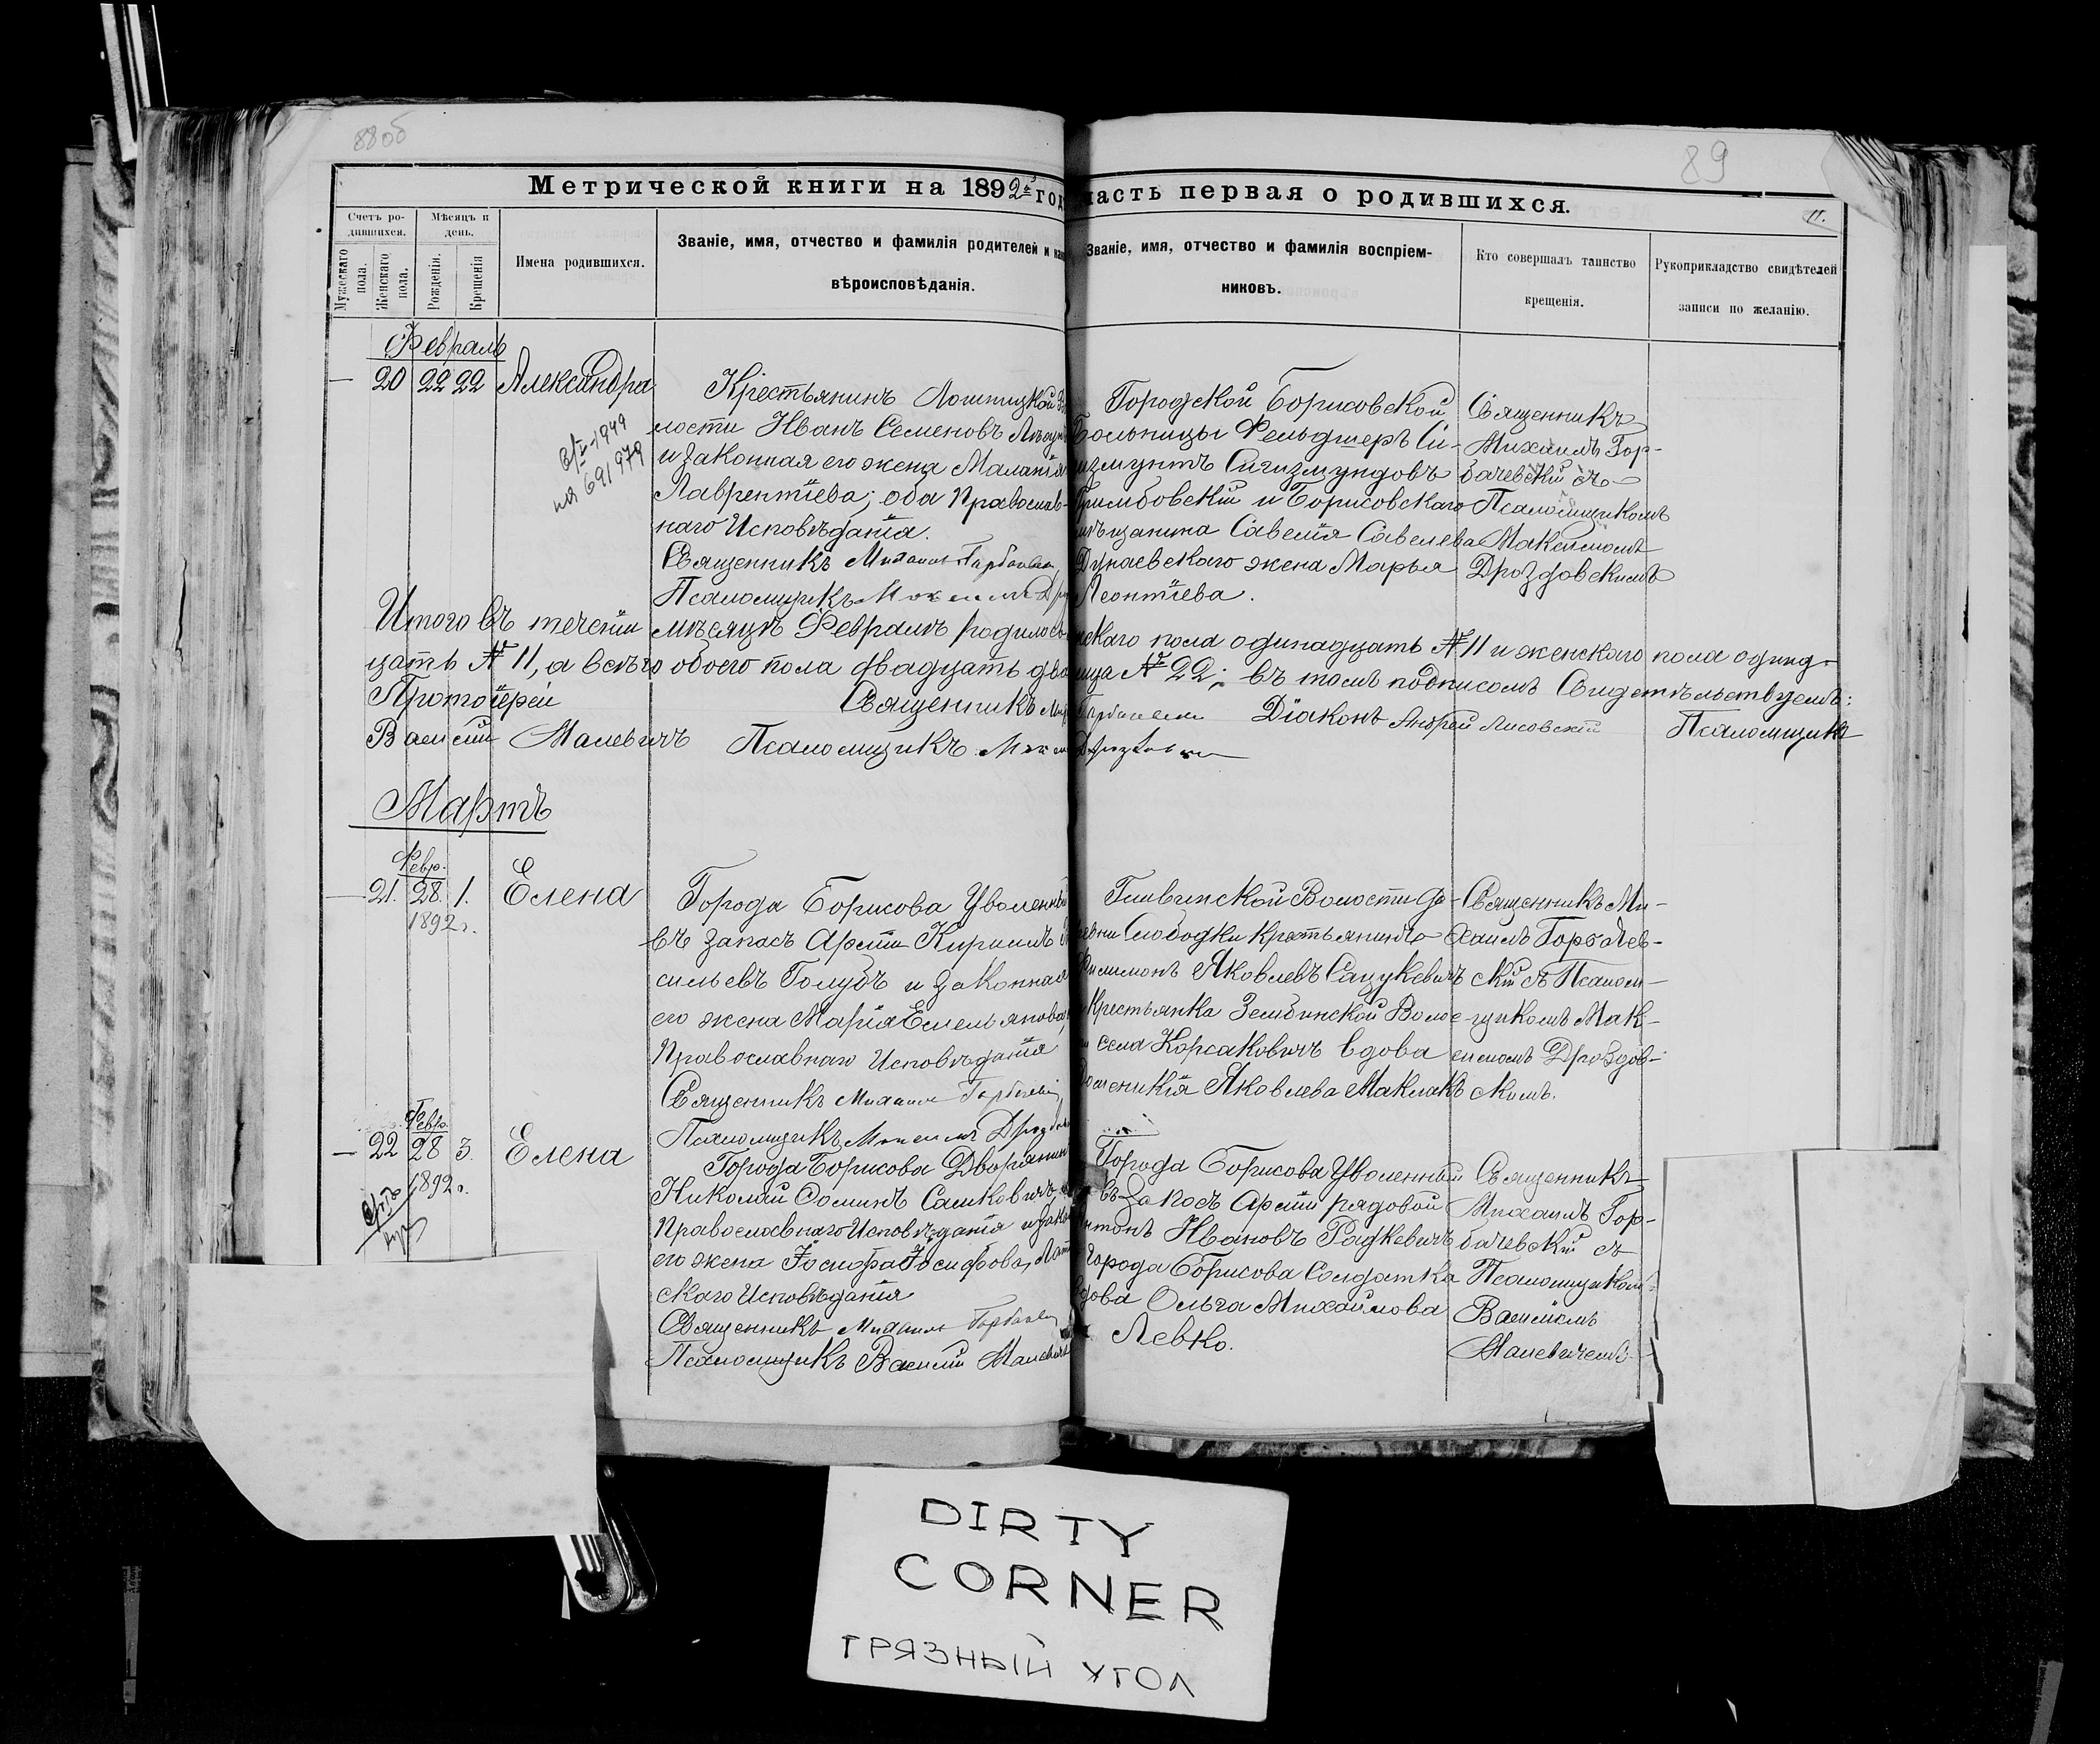 88об
89
Метрической книги на 1892й год
часть первая о родившихся.
11.
Счетъ ро-
дившихся.
Мѣсяцъ и
день.
Мужескаго
пола.
Женскаго
пола.
Рожденія.
Крещенія
Имена родившихся.
Званіе, имя, отчество и фамилія родителей и
вѣроисповѣданія.
Званіе, имя, отчество и фамилія воспріем-
никовъ.
Кто совершалъ таинство
крещенія.
Рукоприкладство свидѣтелей
записи по желанію.
Февраль
— 20 22 22 Александра
1949
691979
Крестьянинъ Лошницкой Во
лости Иванъ Семеновъ
и законная его жена Маланія
Лаврентіева; оба Православ-
наго Исповѣданія.
Священникъ Михаилъ Горбачевскій
Псаломщикъ Максимъ
Городской Борисовской
Больницы Фельдшеръ Си-
измунтъ Сигизмундовъ
и Борисовскаго
мѣщанина Савелія Савелева
Дунаевскаго жена Марья
Леонтіева.
Священникъ
Михаилъ Гор-
бачевскій съ
Псаломщикомъ
Максимомъ
Дроздовскимъ
Итого въ теченіи мѣсяцѣ Февралѣ родилось
мескаго пола одинадцать № 11 и женскаго пола одинад-
цать № 11, а всѣхъ обоего пола двадцать два
лица № 22; въ томъ подписомъ Свидетельствуемъ:
Протоіерей Священникъ
Горбачевскій Діаконъ Андрей Лисовскій Псаломщикъ
Василій Малевичъ Псаломщикъ Максимъ
Дроздовскій
Мартъ
Февр.
— 21. 28. 1. Елена
1892г.
Города Борисова Уволенный
въ запасъ Арміи Кирилъ Ва
сильевъ Голубъ и законная
его жена Марія Емельянова,
Православнаго Исповѣданія
Священникъ Михаилъ Горбачевскій
Псаломщикъ Максимъ Дроздов
Гливинской Волости де-
ревни Слободки Крестьянинъ
Филимонъ Яковлевъ Сацукевичъ
Крестьянка Зембинской Волос-
и села Корсаковичъ вдова
Доменикія Яковлева Маклакъ
Священникъ Ми-
хаилъ Горбачев-
скій съ Псалом-
щикомъ Мак-
симомъ Дроздов-
скимъ.
Февр.
— 22 28 3. Елена
1892г.
Города Борисова Дворянинъ
Николай Сашковичъ
Православнаго Исповѣданія и закон
его жена Іосифа Іосифова, Лати
скаго Исповѣданія
Священникъ Михаилъ Горбачевскій
Псаломщикъ Василій Малевичъ
Города Борисова Уволенный
въ Запасъ Арміи рядовой
Антонъ Ивановъ Радкевичъ
Города Борисова Солдатка
вдова Ольга Михайлова
Левко.
Священникъ
Михаилъ Гор-
бачевскій съ
Псаломщикомъ
Василіемъ
Малевичемъ
DIRTY
CORNER
ГРЯЗНЫЙ УГОЛ